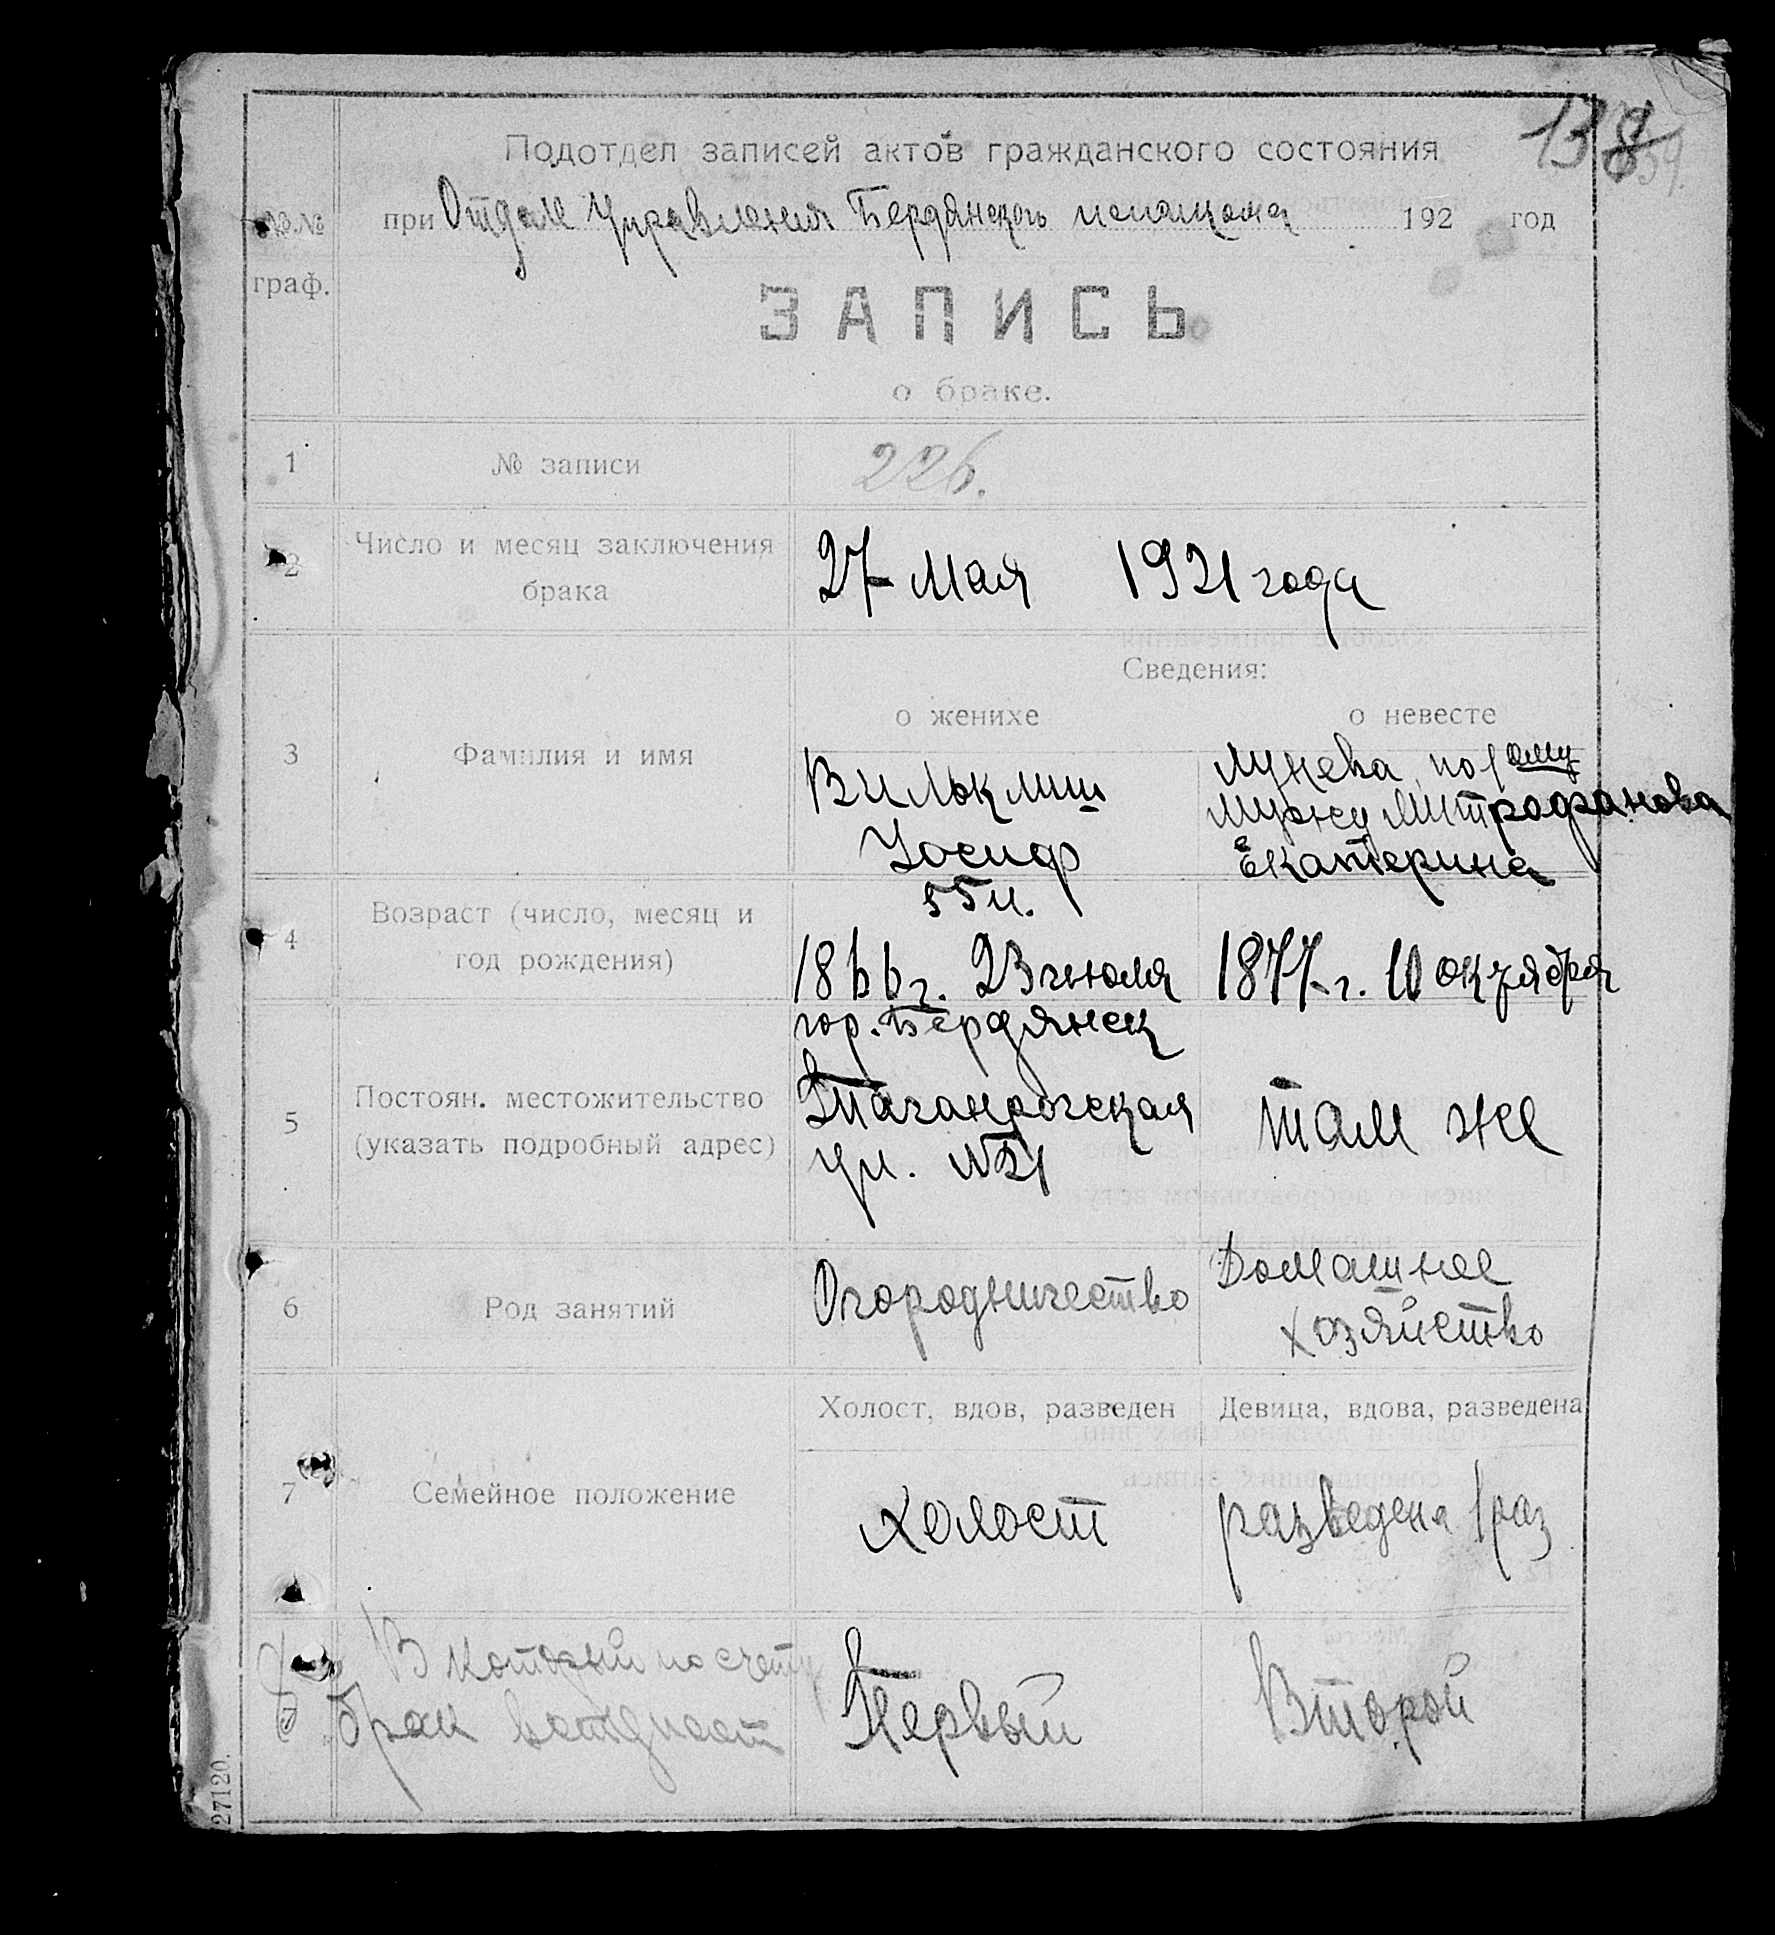 138
Подотдел записей актов гражданского состояния
при Отделе Управления Бердянского исполкома 192 год
№№
граф.
ЗАПИСЬ
о браке.
1 № записи 226.
2 Число и месяц заключения
брака
27 Мая 1921 года
Сведения:
о женихе о невесте
3 Фамилия и имя
Лунева по
мужу Митрофанова
Екатерина
Иосиф
55 л.
4 Возраст (число, месяц и
год рождения)
1866 г. 23 июля 1877 г. 10 октября
гор. Бердянск
5 Постоян. местожительство
(указать подробный адрес)
Таганрогская
ул. №21
там же
6 Род занятий
Огородничество Домашнее
хозяйство
Холост, вдов, разведен Девица, вдова, разведена
7 Семейное положение
холост разведена 1 раз
В который по счету
брак вступает
Первый Второй
27120.